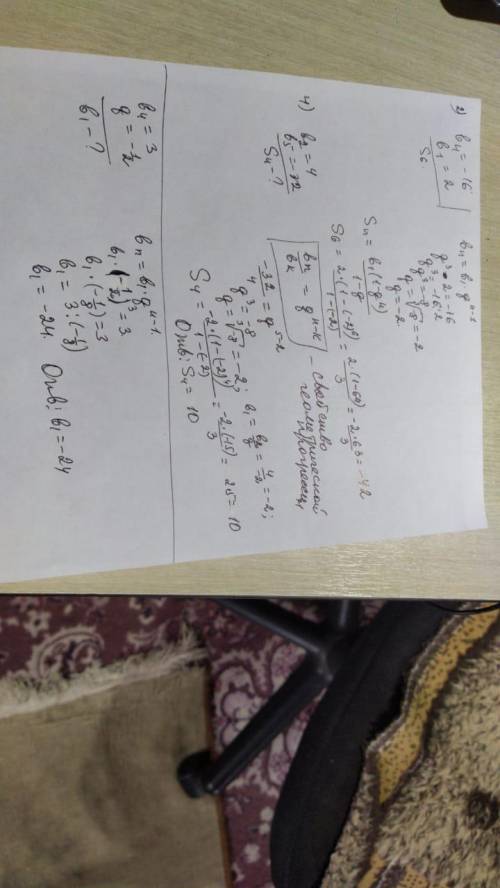 2) b₄ = -16
b₁ = 2
S₆
bₙ = b₁ · qⁿ⁻¹
q³ · 2 = -16
q³ = -16 : 2
q³ = -8
q = ∛-8 = -2
q = -2
Sₙ = b₁(1-qⁿ) / 1-q
S₆ = 2·(1-(-2)⁶) / 1-(-2) = 2·(1-64) / 3 = -2·63 / 3 = -42
4) b₂ = 4
b₅ = -32
S₄ - ?
bₙ / bₖ = qⁿ⁻ᵏ - свойство
геометрической
прогрессии
-32 / 4 = q⁵⁻²
q³ = -8
q = ∛-8 = -2; b₁ = b₂ / q = 4 / -2 = -2;
S₄ = -2·(1-(-2)⁴) / 1-(-2) = -2·(-15) / 3 = 2·5 = 10
Отв: S₄ = 10
b₄ = 3
q = -1/2
b₁ - ?
bₙ = b₁ · qⁿ⁻¹
b₁ · (-1/2)³ = 3
b₁ · (-1/8) = 3
b₁ = 3 : (-1/8)
b₁ = -24. Отв: b₁ = -24